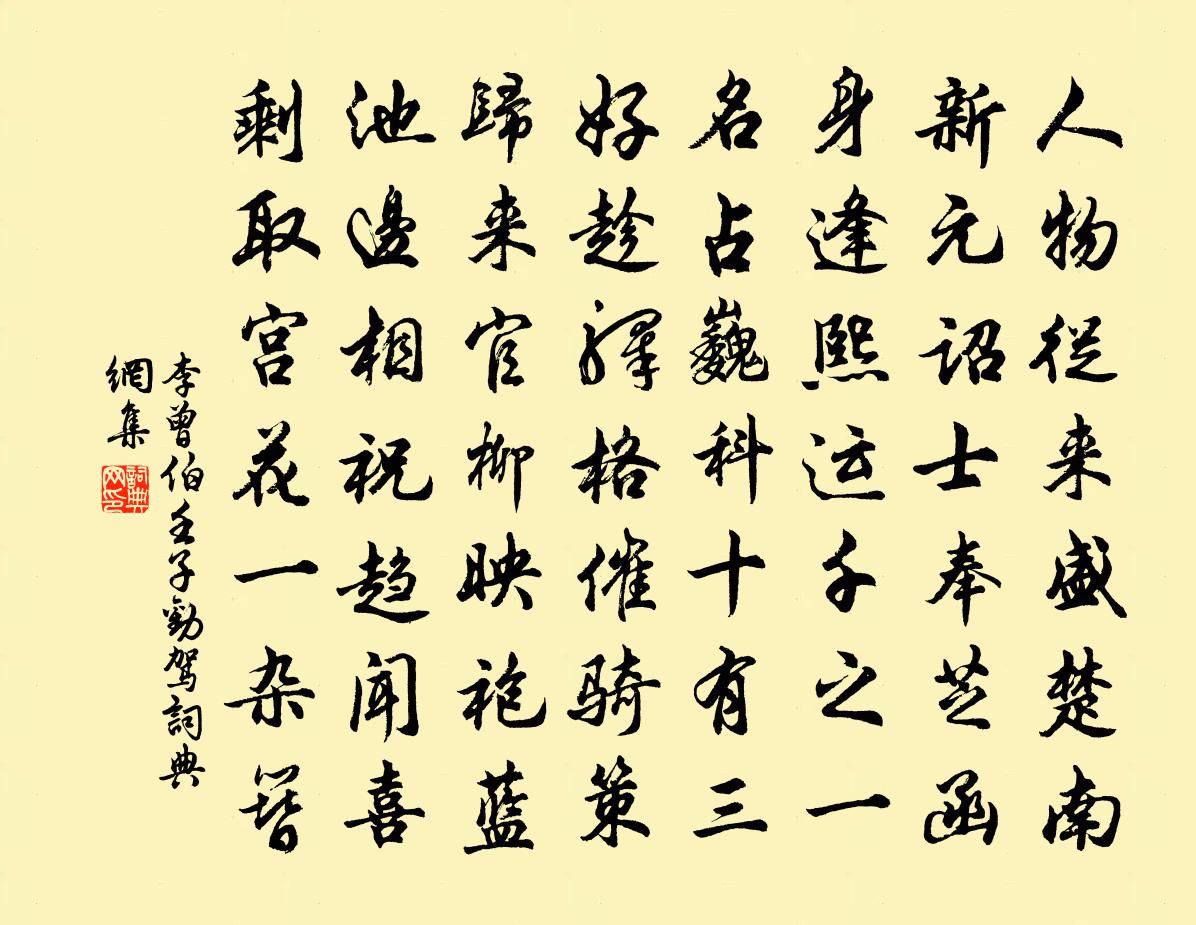 人物從来盛楚南
新元詔士奉芝函
身逢熙运千之一
名占巍科十有三
好趁驛格催骑策
歸来官柳映袍藍
池邊相祝趋闻喜
剩取宫花一朵簪
李曾伯壬子勸驾詞典
網集
詞典网印